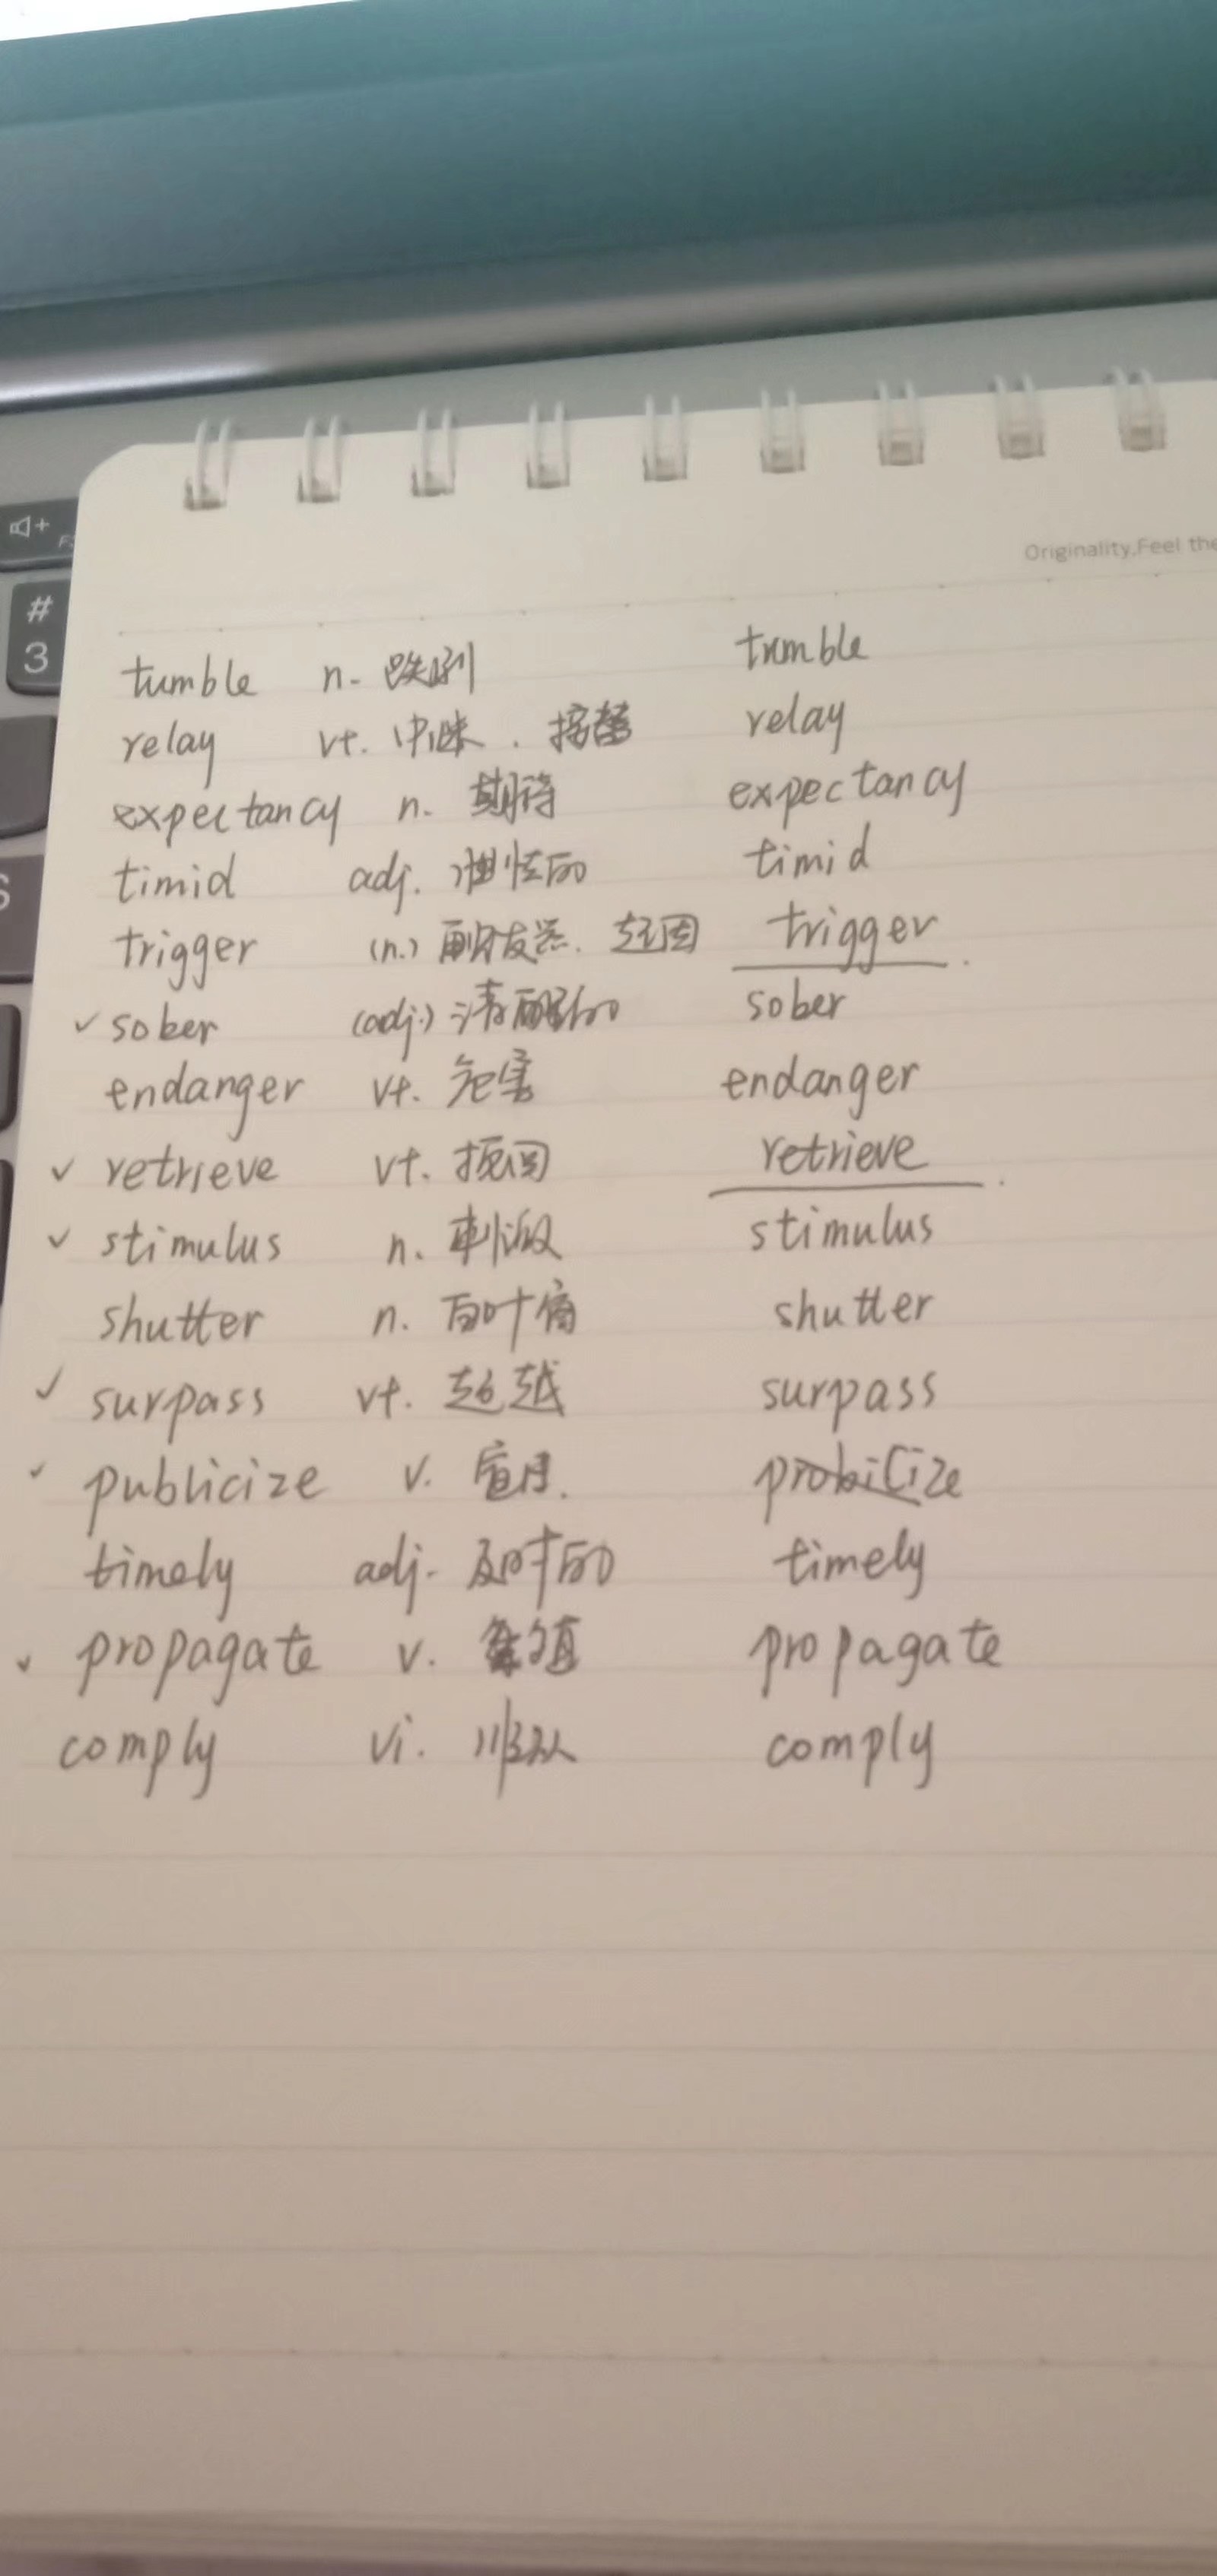 Originality.Feel the
F
#
3
S
tumble n. 跌倒 tumble
relay vt. 中继. 接替 relay
expectancy n. 期待 expectancy
timid adj. 胆怯的 timid
trigger (n.) 触发器. 起因 trigger.
✓ sober (adj.) 清醒的 sober
endanger vt. 危害 endanger
✓ retrieve vt. 挽回 retrieve.
✓ stimulus n. 刺激 stimulus
shutter n. 百叶窗 shutter
✓ surpass vt. 超越 surpass
✓ publicize v. 宣传. probicize
timely adj. 及时的 timely
✓ propagate v. 繁殖 propagate
comply vi. 顺从 comply